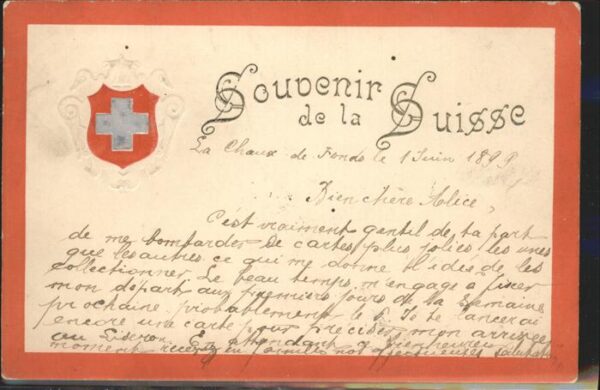 Souvenir
de la Suisse
La Chaux de Fonds le 1 Juin 1899
Bien chère Alice,
C'est vraiment gentil de ta part
de me bombarder de cartes plus jolies les unes
que les autres ce qui me donne l'idée de les
collectionner. Le beau temps m'engage a fixer
mon départ aux premiers jours de la semaine
prochaine probablement le 6. Je te lancerai
encore une carte pour préciser mon arrivée
au En attendant
moment recevez en familles nos affectueuses